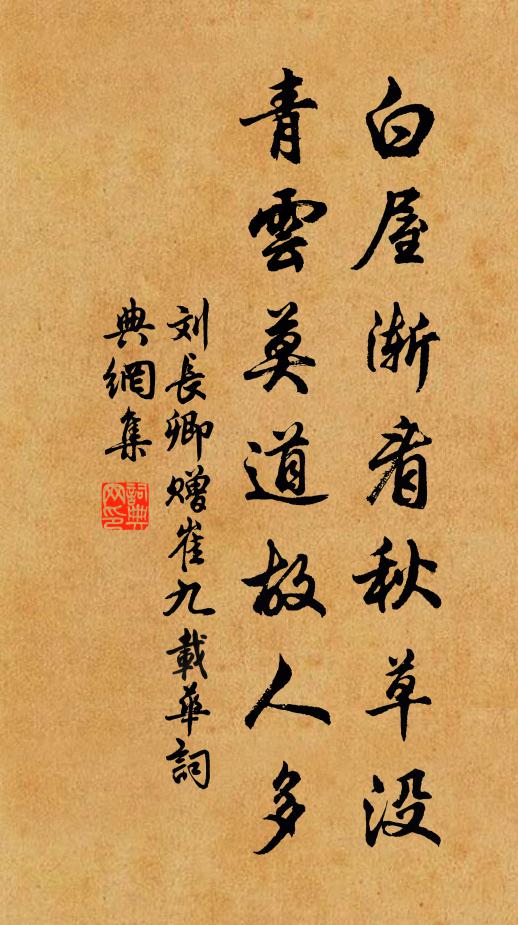 白屋渐看秋草没
青雲莫道故人多
刘長卿赠崔九載華詞
典網集
詞典
网印